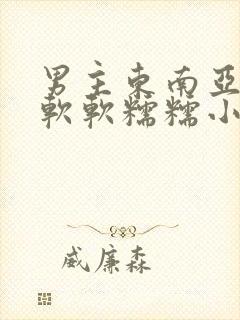 男主東南亞
軟軟糯糯小
威廉森